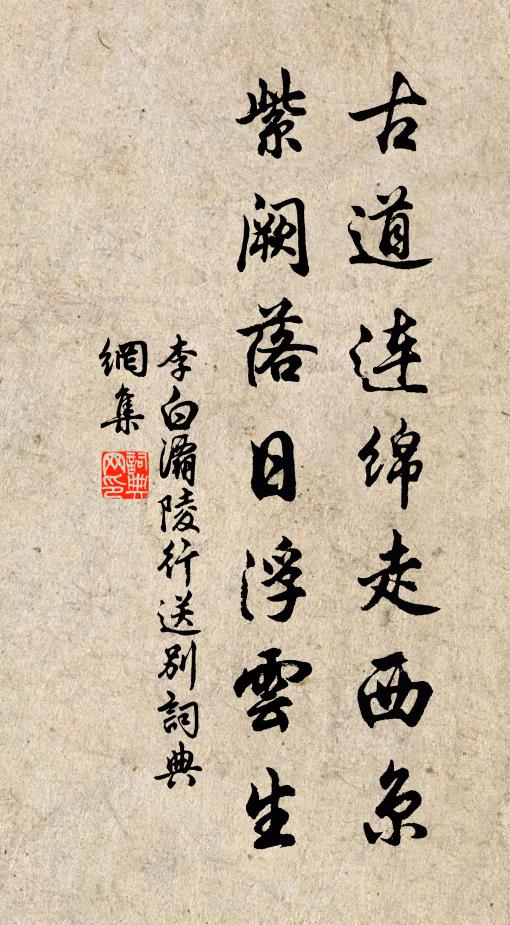 古道连绵走西京
紫阙落日浮雲生
李白灞陵行送別詞典
網集
詞典网印